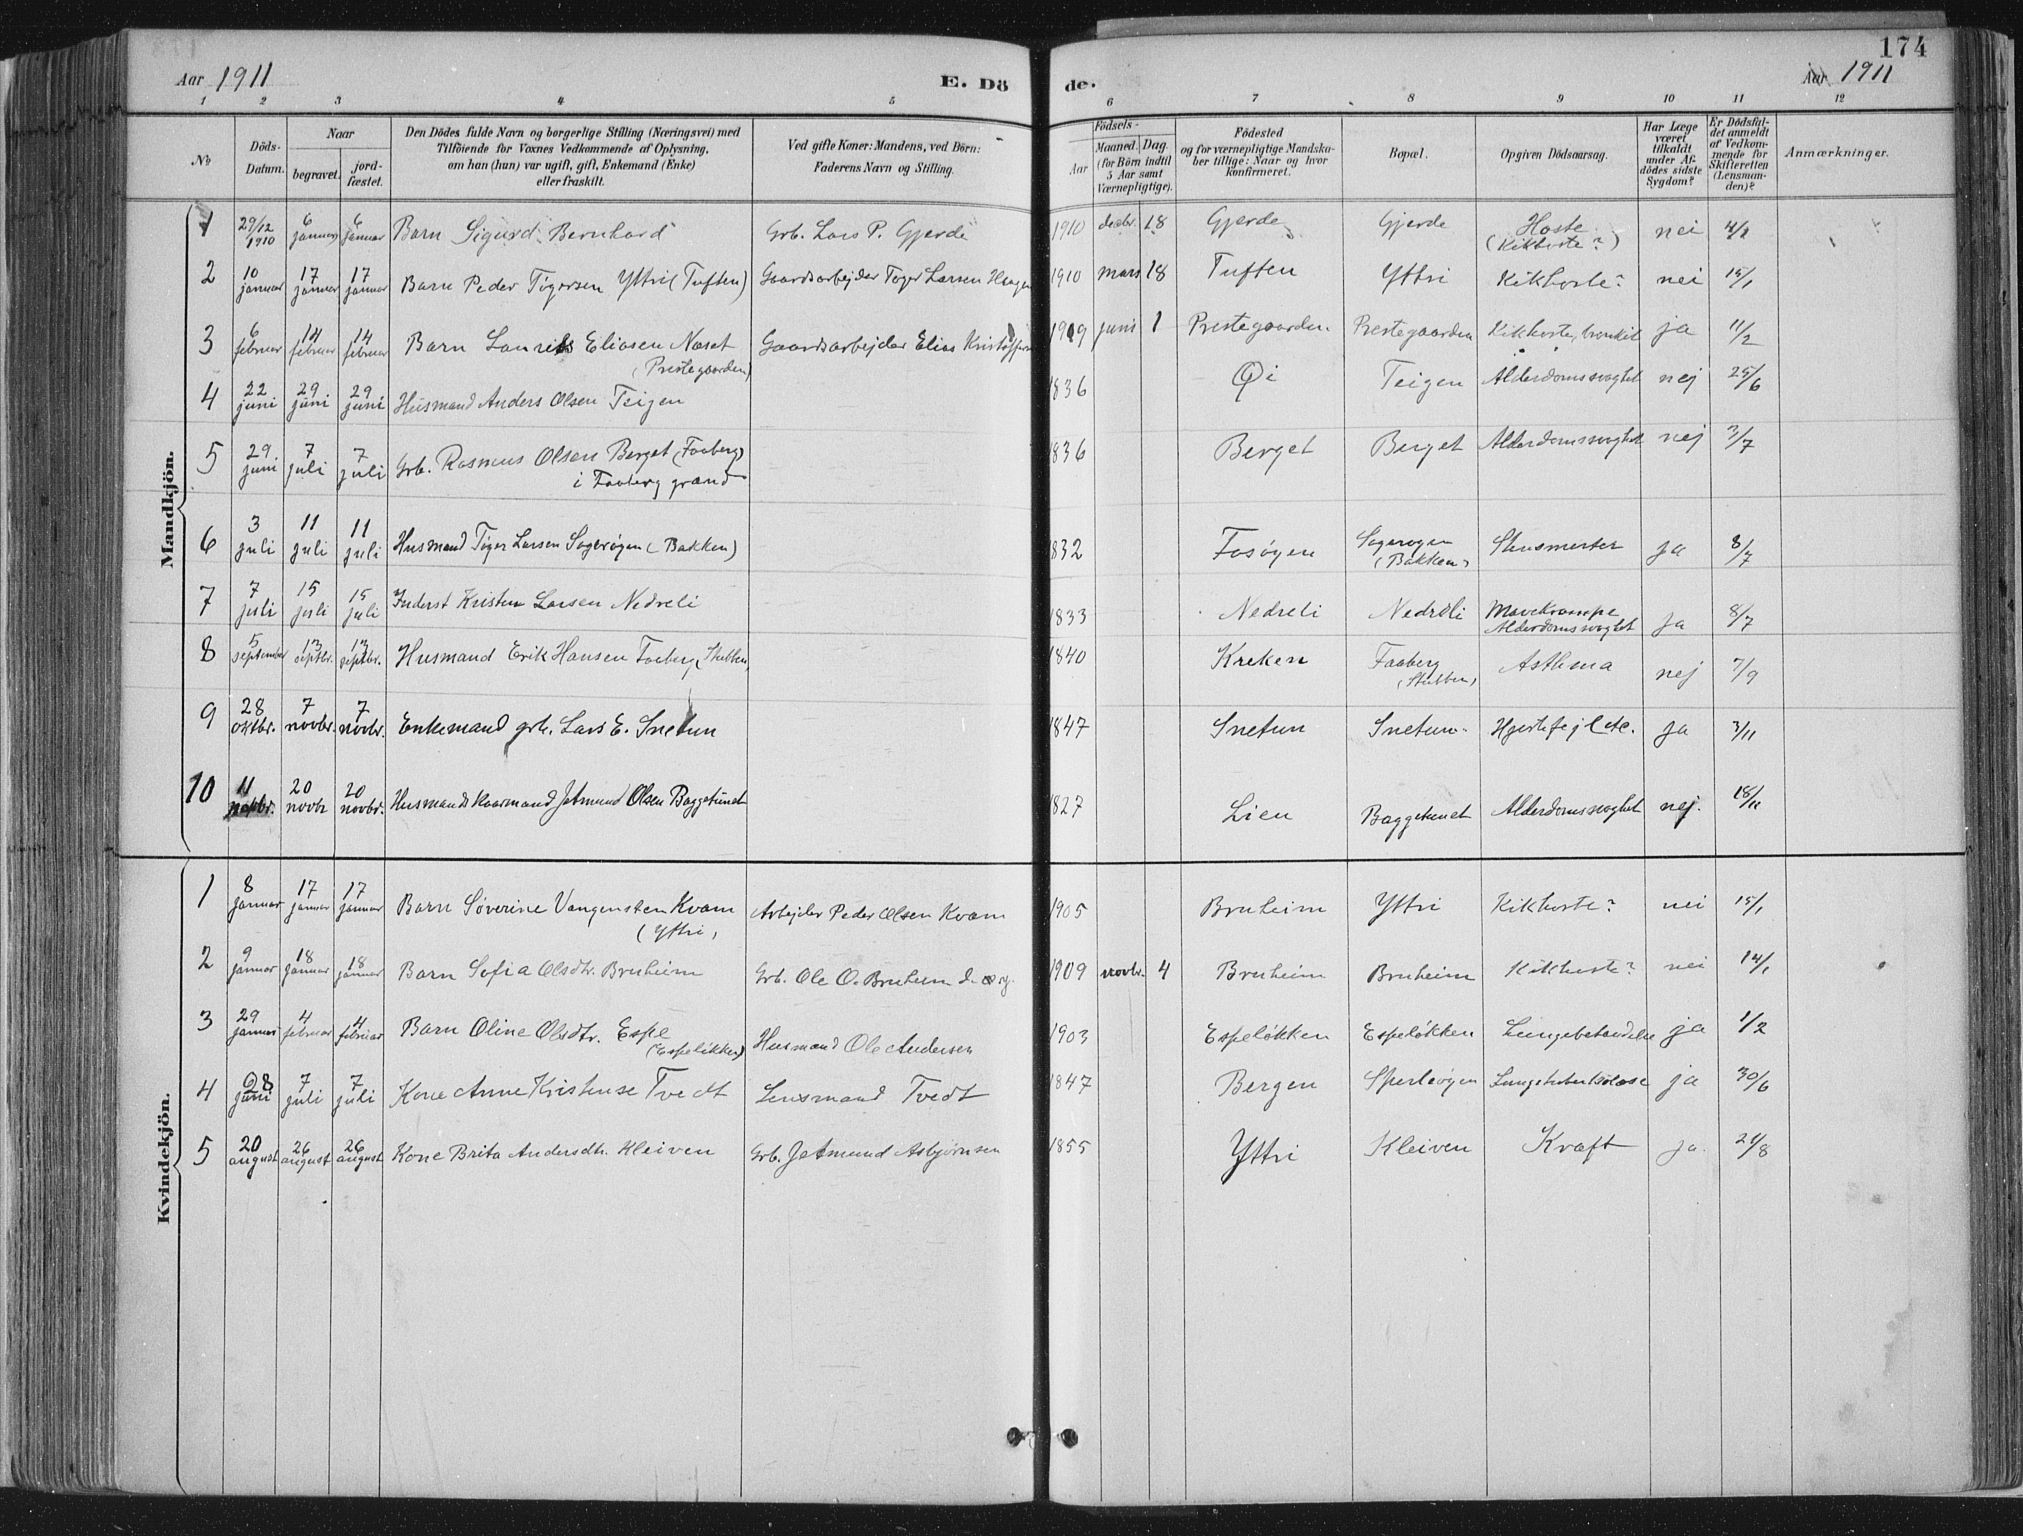 174
Aar 1911
E. Dö de.
Aar 1911
1 2 3 4 5 6 7 8 9 10 11 12
No
Döds-Datum.
Naar
begravet.
jord-fæstet.
Den Dödes fulde Navn og borgerlige Stilling (Næringsvei) med
Tilföiende for Voxnes Vedkommende af Oplysning,
om han (hun) var ugift, gift, Enkemand (Enke)
eller fraskilt.
Ved gifte Koner: Mandens, ved Börn:
Faderens Navn og Stilling.
Födsels-
Aar
Maaned. Dag
(for Börn indtil
5 Aar samt
Værnepligtige).
Födested
og for værnepligtige Mandska-
ber tillige: Naar og hvor
konfirmeret.
Bopæl.
Opgiven Dödsaarsag.
Har Læge
været
tilkaldt
under Af-
dödes sidste
Sygdom?
Er Dödsfal-
det anmeldt
af Vedkom-
mende for
Skifteretten
(Lensman-
den)?
Anmærkninger.
Mandkjön.
1 29/12 1910 6 januar 6 januar Barn Sigurd Bernhard Grb. Lars P. Gjerde 1910 decbr. 18 Gjerde Gjerde Hoste (Kikhoste?) nei 4/1
2 10 januar 17 januar 17 januar Barn Peder Tøgersen Yttri (Tuften) Gaardsarbejder Tøger Larsen Haugen 1910 mars 18 Tuften Yttri Kikhoste? nei 15/1
3 6 februar 14 februar 14 februar Barn Laurits Eliasen Næset (Prestegaarden) Gaardsarbejder Elias 1909 juni 1 Prestegaarden Prestegaarden Kikhoste, bronkit ja 11/2
4 22 juni 29 juni 29 juni Husmand Anders Olsen Teigen 1836 Øi Teigen Alderdomssvaghet nej 25/6
5 29 juni 7 juli 7 juli Grb. Rasmus Olsen Berget (Faaberg) i Faaberg grand 1836 Berget Berget Alderdomssvaghet nej 3/7
6 3 juli 11 juli 11 juli Husmand Tøger Larsen Sagerøgen (Bakken) 1832 Fosøyen Sagerøgen (Bakken) Stensmerter ja 8/7
7 7 juli 15 juli 15 juli Inderst Kristen Larsen Nedreli 1833 Nedreli Nedreli Mavekrampe Alderdomssvaghet ja 8/7
8 5 september 13 septbr. 13 septbr. Husmand Erik Hansen Faaberg (Stubben) 1840 Kreken Faaberg (Stubben) Asthma nej 7/9
9 28 oktbr. 7 novbr. 7 novbr. Enkemand grb. Lars E. Snetun 1847 Snetun Snetun Hjertefejl etc. ja 3/11
10 11 20 novbr 20 novbr. Husmands kaarmand Jetmund Olsen Baggetunet 1827 Lien Baggetunet Alderdomssvaghet nej. 18/11
Kvindekjön.
1 8 januar 17 januar 17 januar Barn Søverine Vangensten Kvam (Yttri) Arbejder Peder Olsen Kvam 1905 Bruheim Yttri Kikhoste? nei 15/1
2 9 januar 18 januar 18 januar Barn Sofia Olsdtr. Bruheim Grb. Ole O. Bruheim 1909 novbr. 4 Bruheim Bruheim Kikhoste? nei 14/1
3 29 januar 4 februar 4 februar Barn Oline Olsdtr. Espe (Espeløkken) Husmand Ole Andersen 1903 Espeløkken Espeløkken Lungebetændelse ja 1/2
4 28 juni 7 juli 7 juli Kone Anne Kristense Tvedt Lensmand Tvedt 1847 Bergen Sperleøyen Lungetuberkulose ja 30/6
5 20 august 26 august 26 august Kone Brita Andersdtr. Kleiven Grb. Jetmund Asbjørnsen 1855 Yttri Kleiven Kræft ja. 24/8